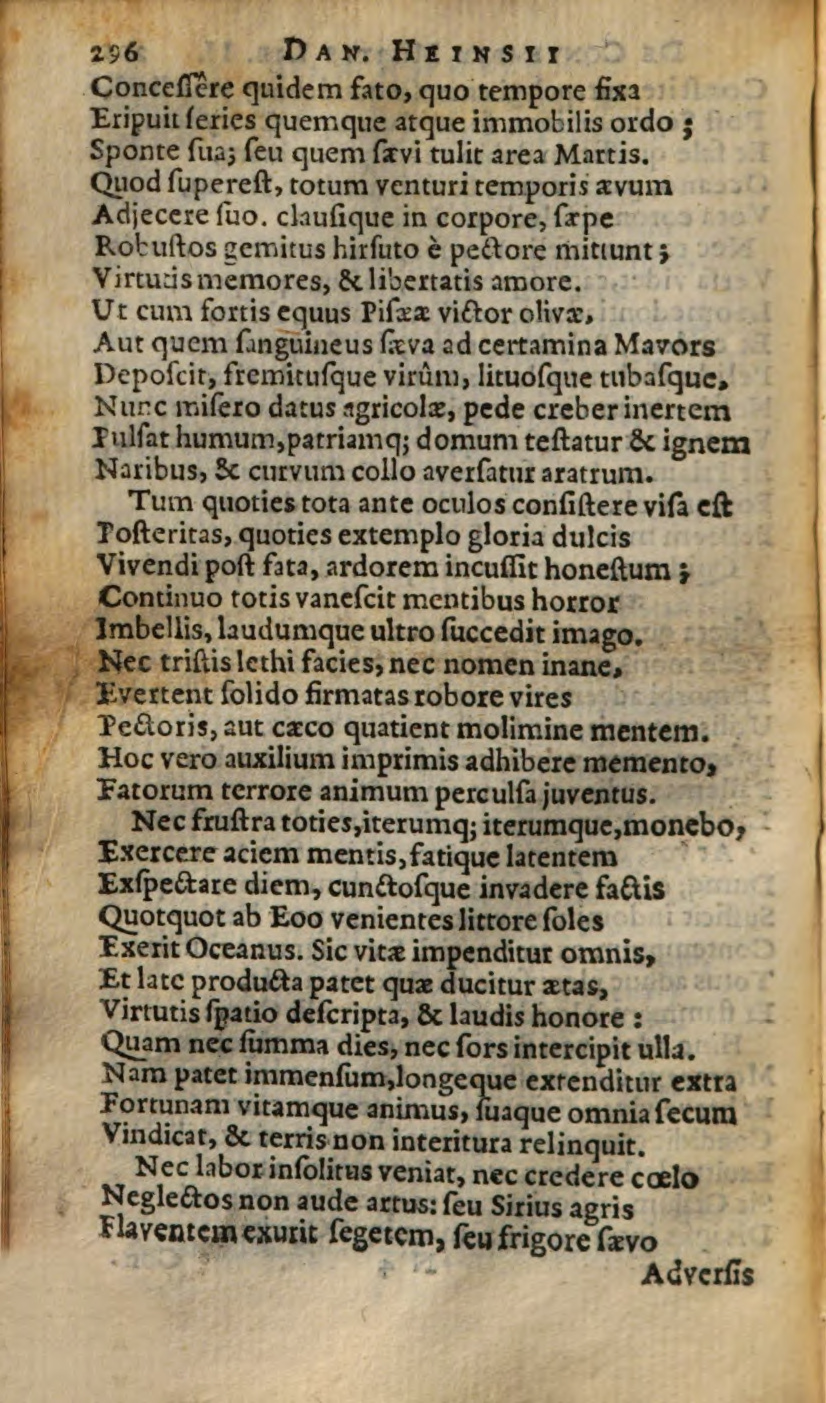 296 DAN. HEINSII
Conceſſêre quidem fato, quo tempore fixa
Eripuit ſeries quemque atque immobilis ordo ;
Sponte ſua; ſeu quem ſævi tulit area Martis.
Quod ſupereſt, totum venturi temporis ævum
Adjecere ſuo. clauſique in corpore, ſæpe
Robuſtos gemitus hirſuto è pectore mittunt ;
Virtutis memores, & libertatis amore.
Ut cum fortis equus Piſææ victor olivæ,
Aut quem ſanguineus ſæva ad certamina Mavors
Depoſcit, fremituſque virûm, lituoſque tubaſque,
Nunc miſero datus agricolæ, pede creber inertem
Pulſat humum, patriamq; domum teſtatur & ignem
Naribus, & curvum collo averſatur aratrum.
Tum quoties tota ante oculos conſiſtere viſa eſt
Poſteritas, quoties extemplo gloria dulcis
Vivendi poſt fata, ardorem incuſſit honeſtum ;
Continuo totis vaneſcit mentibus horror
Imbellis, laudumque ultro ſuccedit imago.
Nec triſtis lethi facies, nec nomen inane,
Evertent ſolido firmatas robore vires
Pectoris, aut cæco quatient molimine mentem.
Hoc vero auxilium imprimis adhibere memento,
Fatorum terrore animum perculſa juventus.
Nec fruſtra toties, iterumq; iterumque, monebo,
Exercere aciem mentis, fatique latentem
Exſpectare diem, cunctoſque invadere factis
Quotquot ab Eoo venientes littore ſoles
Exerit Oceanus. Sic vitæ impenditur omnis,
Et late producta patet quæ ducitur ætas,
Virtutis ſpatio deſcripta, & laudis honore :
Quam nec ſumma dies, nec ſors intercipit ulla.
Nam patet immenſum, longeque extenditur extra
Fortunam vitamque animus, ſuaque omnia ſecum
Vindicat, & terris non interitura relinquit.
Nec labor inſolitus veniat, nec credere cœlo
Neglectos non aude artus: ſeu Sirius agris
Flaventem exurit ſegetem, ſeu frigore ſævo
Adverſis